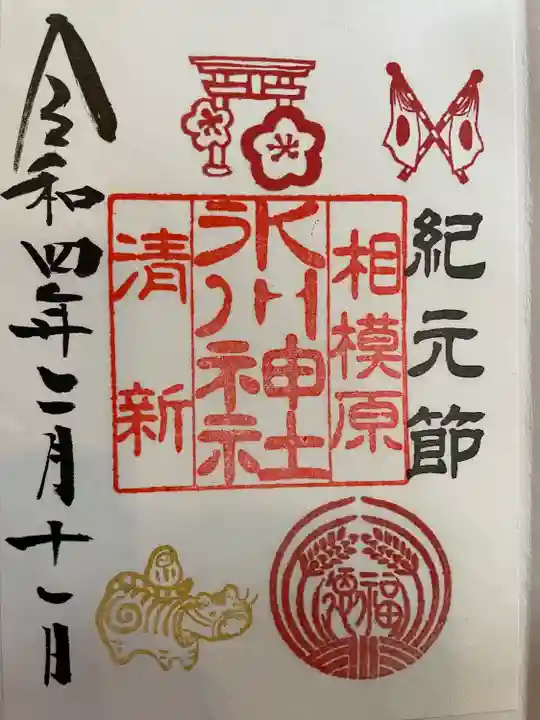 紀元節
相模原
氷川神社
清新
令和四年二月十一日
福徳